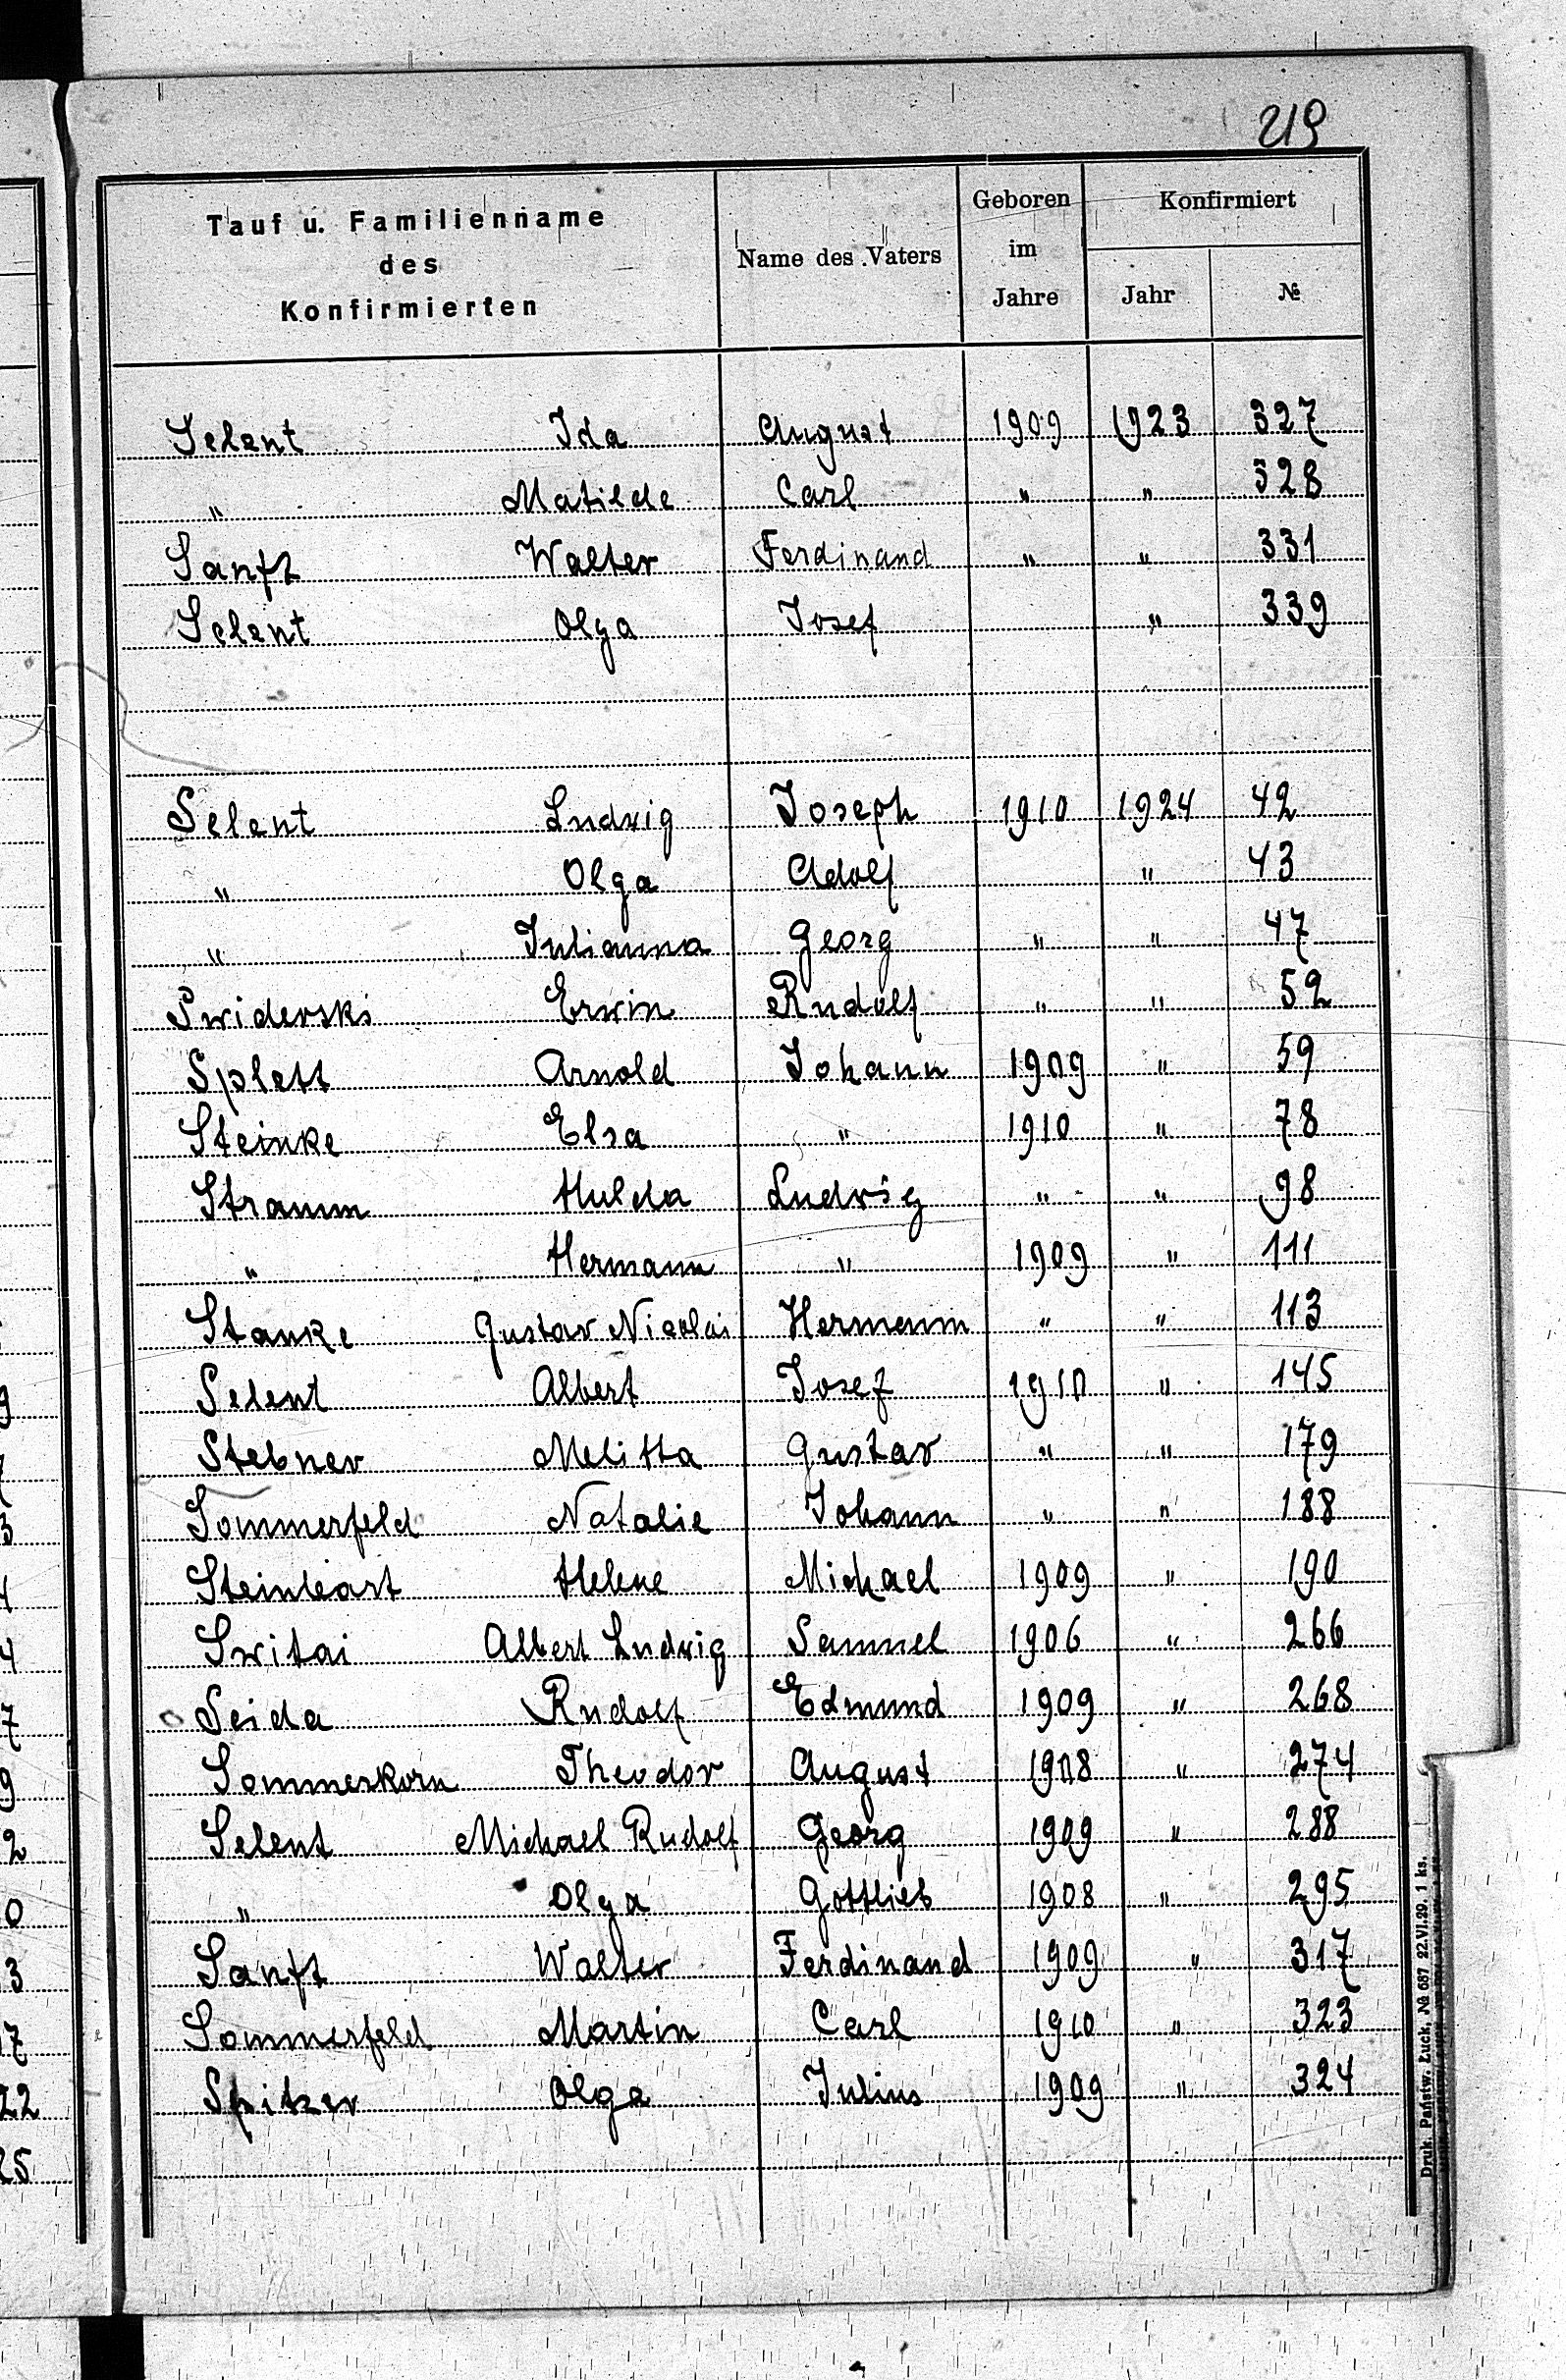 219
Tauf u. Familienname des Konfirmierten | Name des Vaters | Geboren im Jahre | Konfirmiert Jahr | №
Selent Ida August 1909 1923 327
" Matilde Carl " " 328
Sanft Walter Ferdinand " " 331
Selent Olga Josef " 339
Selent Ludwig Joseph 1910 1924 42
" Olga Adolf " 43
" Julianna Georg " " 47
Swiderski Erwin Rudolf " " 52
Splett Arnold Johann 1909 " 59
Steinke Elsa " 1910 " 78
Stramm Hulda Ludwig " " 98
" Hermann " 1909 " 111
Stanke Gustav Nicolai Hermann " " 113
Selent Albert Josef 1910 " 145
Stebner Melitta Gustav " " 179
Sommerfeld Natalie Johann " " 188
Steinleart Helene Michael 1909 " 190
Switai Albert Ludwig Samuel 1906 " 266
Seida Rudolf Edmund 1909 " 268
Sommerkorn Theodor August 1908 " 274
Selent Michael Rudolf Georg 1909 " 288
" Olga Gottlieb 1908 " 295
Sanft Walter Ferdinand 1909 " 317
Sommerfeld Martin Carl 1910 " 323
Spitzer Olga Julius 1909 " 324
Druk. Państw. Łuck, № 687 22.VI.29. 1 ks.